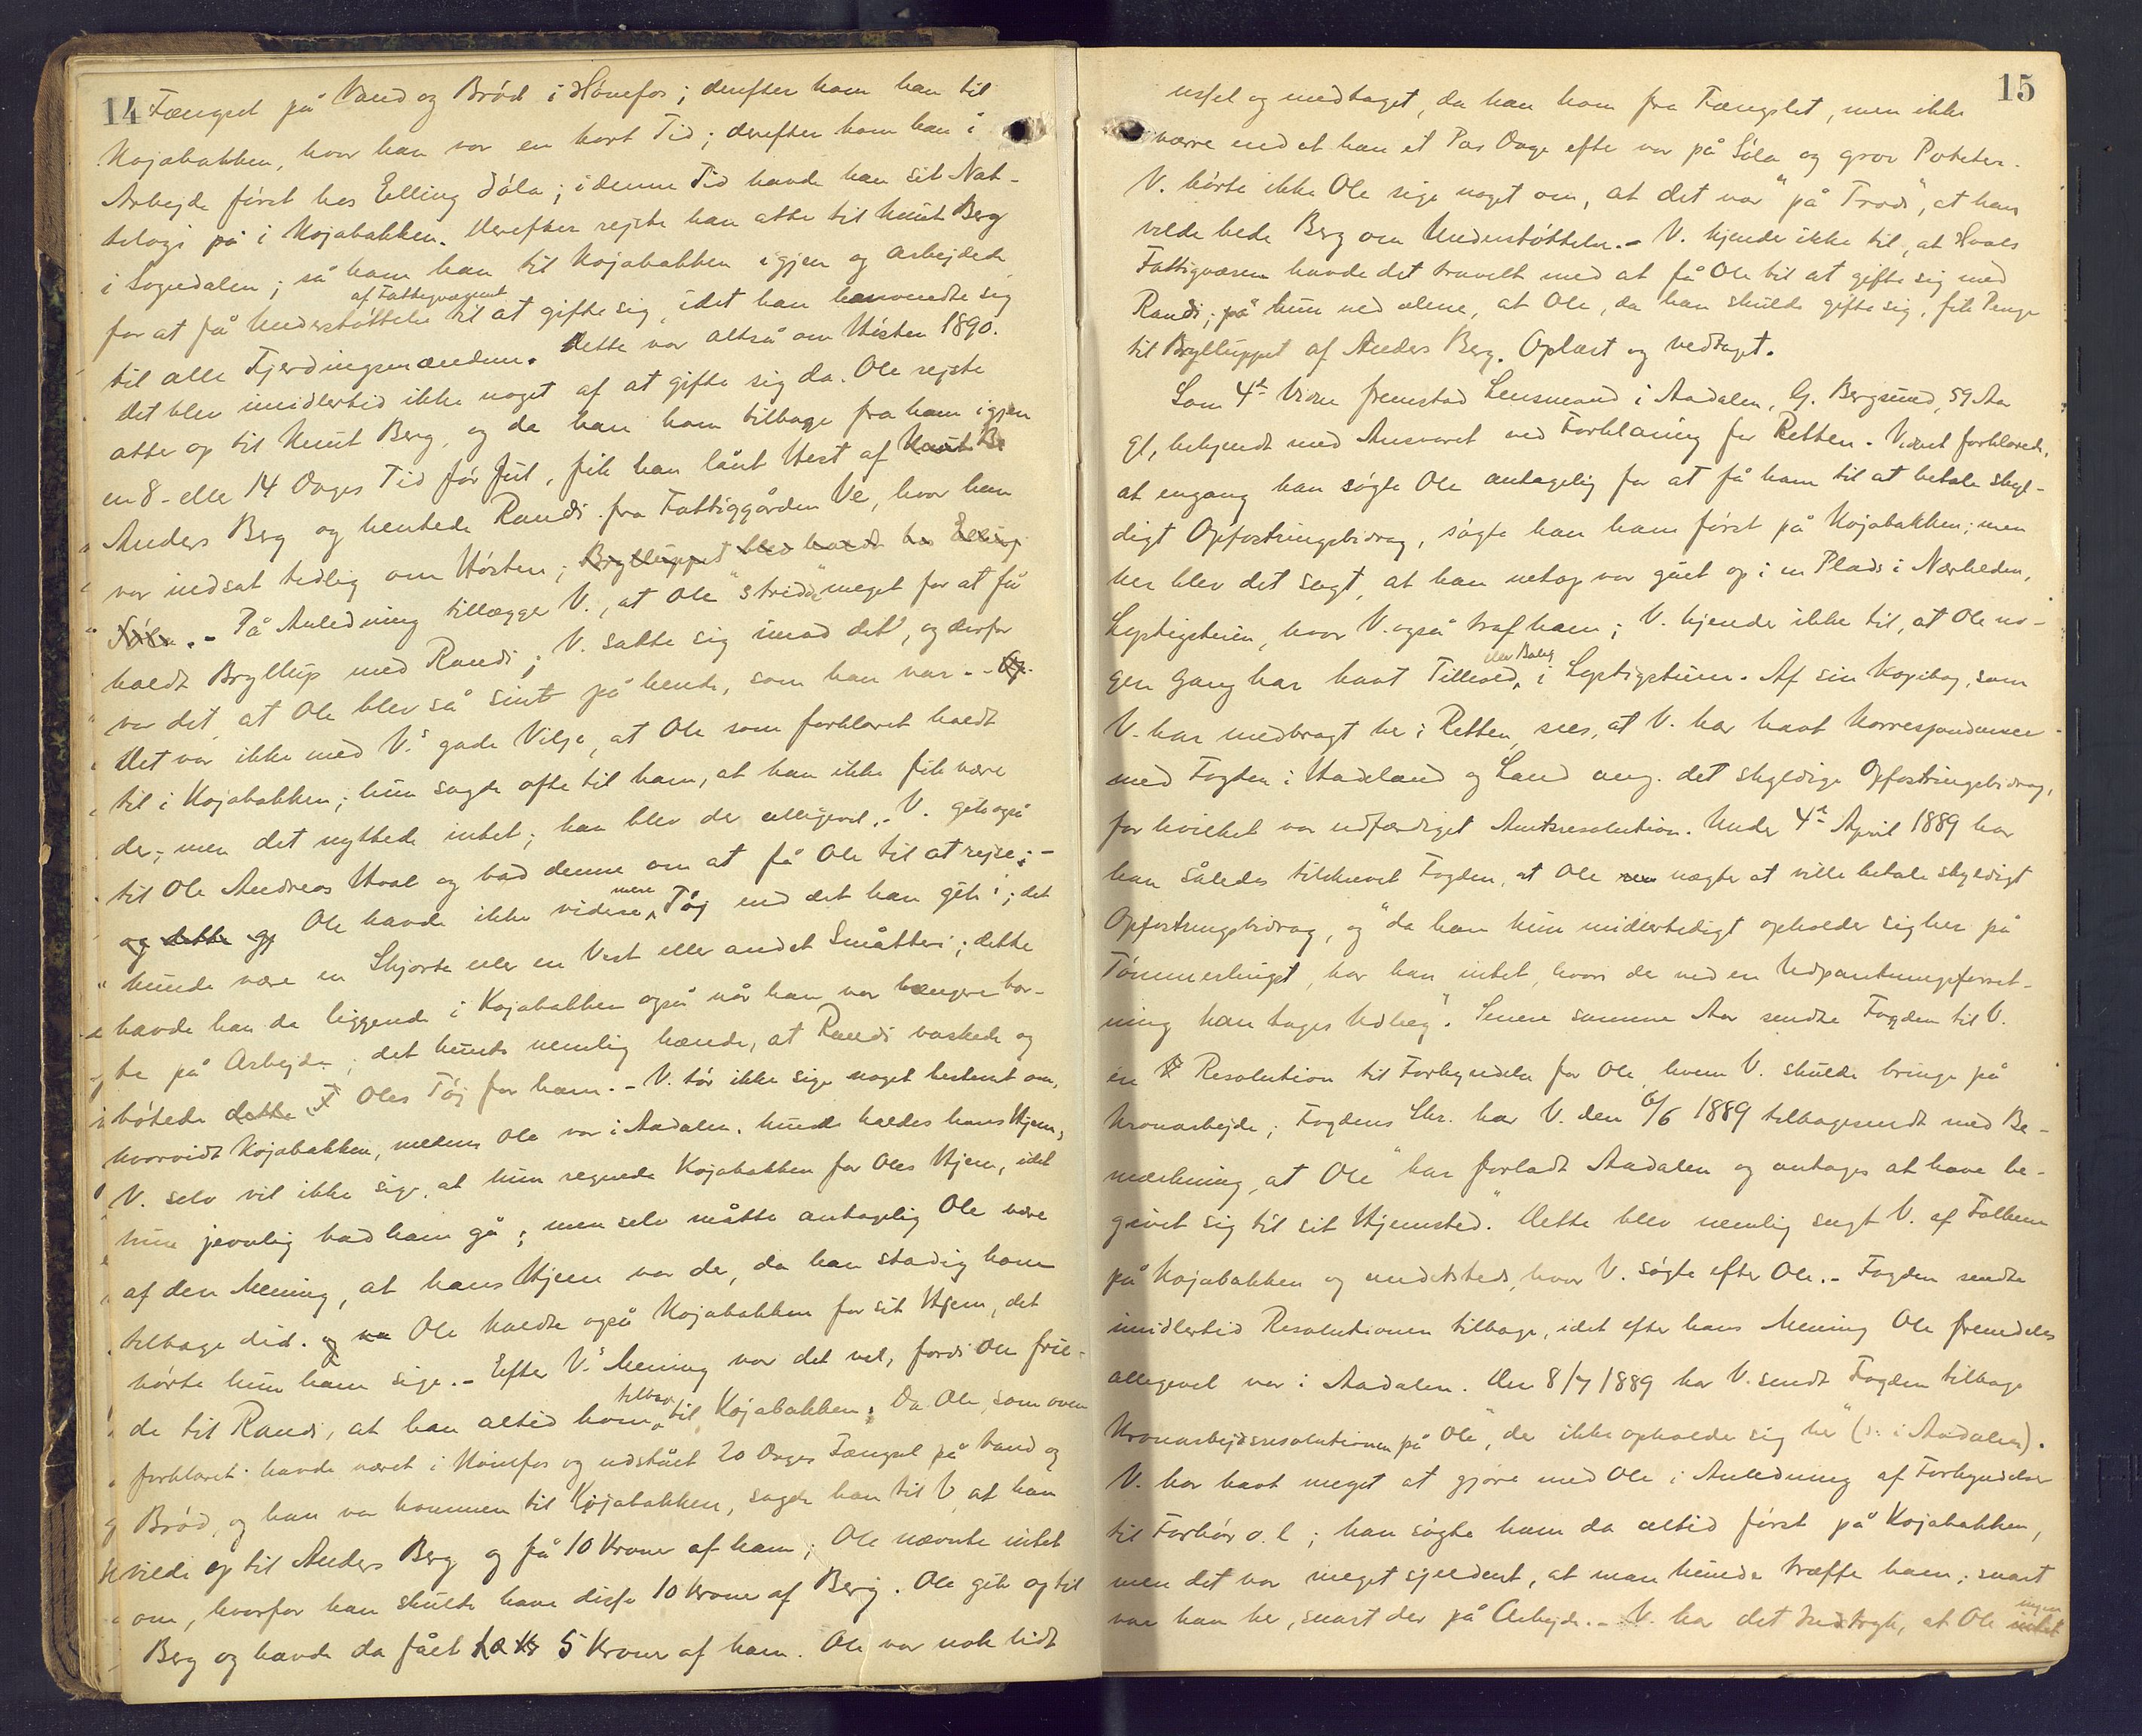 14 Fængsel på Vand og Brød i Hönefos; derefter kom han til
Kojabakken, hvor han var en kort Tid; derefter kom han i
Arbejde först hos Elling Söla; i denne Tid havde han sit Nat-
telogi på i Kojabakken. Derefter rejste han atter til Knut Berg
i Sognedalen; så kom han til Kojabakken igjen og arbejdede
for at få Understöttelse af Fattigvæsenet til at gifte sig, idet han henvendte sig
til alle Fjerdingsmændene. Dette var altså om Hösten 1890.
Det blev imidlertid ikke noget af at gifte sig da. Ole rejste
atter op til Knut Berg, og da han kom tilbage fra ham igjen
en 8- eller 14 Dages Tid för Jul, fik han lånt Hest af Knut Be
Anders Berg og hentede Randi fra Fattiggården Ve, hvor hun
var indsat tidlig om Hösten; Brylluppet blev havdt hos Elling
Söla. - På Anledning tillægger V., at Ole "stridde" meget for at få
holdt Bryllup med Randi; V. satte sig imod det, og derfor
var det, at Ole blev så sint på hende, som han var. - Og
Det var ikke med V.s gode Vilje, at Ole som forklaret holdt
til i Kojabakken; hun sagde ofte til ham, at han ikke fik være
der; men det nyttede intet; han blev der alligevel. - V. gik også
til Ole Andreas Hval og bad denne om at få Ole til at rejse; -
og dette gj Ole havde ikke videre mere Töj end det han gik i; det
kunde være en Skjorte eller en Vest eller andet Småtteri; dette
havde han da liggende i Kojabakken også når han var længere bor-
te på Arbejde; det kunde nemlig hænde, at Randi vaskede og
bötede dette T Oles Töj for ham. - V. tör ikke sige noget bestemt om,
hvorvidt Kojabakken, medens Ole var i Aadalen, kunde kaldes hans Hjem;
V. selv vil ikke sige, at hun regnede Kojabakken for Oles Hjem, idet
hun jevnlig bad ham gå; men selv måtte antagelig Ole være
af den Mening, at hans Hjem var der, da han stadig kom
tilbage did. og Ole kaldte også Kojabakken for sit Hjem, det
hörte hun ham sige. - Efter V.s Mening var det vel, fordi Ole frie-
de til Randi, at han altid kom tilbage til Kojabakken. Da Ole, som oven
forklaret havde været i Hönefos og udstået 20 Dages Fængsel på Vand og
Bröd, og han var kommen til Kojabakken, sagde han til V, at han
vilde op til Anders Berg og få 10 Kroner af ham; Ole nævnte intet
om, hvorfor han skulde have disse 10 Kroner af Berg. Ole gik op til
Berg og havde da fået 5 Kroner af ham. Ole var nok lidt
15
ussel og medtaget, da han kom fra Fængslet, men ikke
værre end at han et Par Dage efter var på Söla og grov Poteter.
V. hörte ikke Ole sige noget om, at det var "på Trods", at han
vilde bede Berg om Understöttelse. - V. kjender ikke til, at Hvals
Fattigvæsen havde det travelt med at få Ole til at gifte sig med
Randi; på hun ved alene, at Ole, da han skulde gifte sig, fik Penge
til Brylluppet af Anders Berg. Oplæst og vedtaget.
Som 4de Vidne fremstod Lensmand i Aadalen, G. Bergsund, 59 Aar
gl., bekjendt med Ansvaret ved Forklaring for Retten. Vidnet forklarede,
at engang han sögte Ole antagelig for at få ham til at betale skyl-
digt Opfostringsbidrag, sögte han ham först på Kojabakken; men
her blev det sagt, at han netop var gået op i en Plads i Nærheden,
Leptigstuen, hvor V. også traf ham; V. kjender ikke til, at Ole no-
gen Gang har havt Tilhold eller Bolig i Leptigstuen. Af sin Kopibog, som
V. har medbragt her i Retten, sees, at V. har havt Korrespondance
med Fogden i Hadeland og Land ang. det skyldige Opfostringsbidrag,
for hvilket var udfærdiget Amtsresolution. Under 4de April 1889 har
han således tilskrevet Fogden, at Ole nægter at ville betale skyldigt
Opfostringsbidrag, og "da han kun midlertidigt opholder sig her på
Tömmerhugst, har han intet, hvori der ved en Udpantningsforret-
ning kan tages Udlæg". Senere samme Aar sendte Fogden til V.
en Resolution til Forkyndelse for Ole, hvem V. skulde bringe på
Kronarbejde; Fogdens Skr. har V. den 6/6 1889 tilbagesendt med Be-
mærkning, at Ole "har forladt Aadalen og antages at have be-
givet sig til sit Hjemsted." Dette blev nemlig sagt V. af Folkene
på Kojabakken og andetsteds, hvor V. sögte efter Ole. - Fogden sendte
imidlertid Resolutionen tilbage, idet efter hans Mening Ole fremdeles
alligevel var i Aadalen. Den 8/7 1889 har V. sendt Fogden tilbage
Kronarbejdsresolutionen på Ole, "der ikke opholder sig her" (o: i Aadalen).
V. har havt meget at gjöre med Ole i Anledning af Forkyndelser
til Forhör o.l; han sögte ham da altid först på Kojabakken,
men det var meget sjeldent, at man kunde træffe ham; snart
var han her, snart der på Arbejde. - V. har det Indtryk, at Ole intet ingen